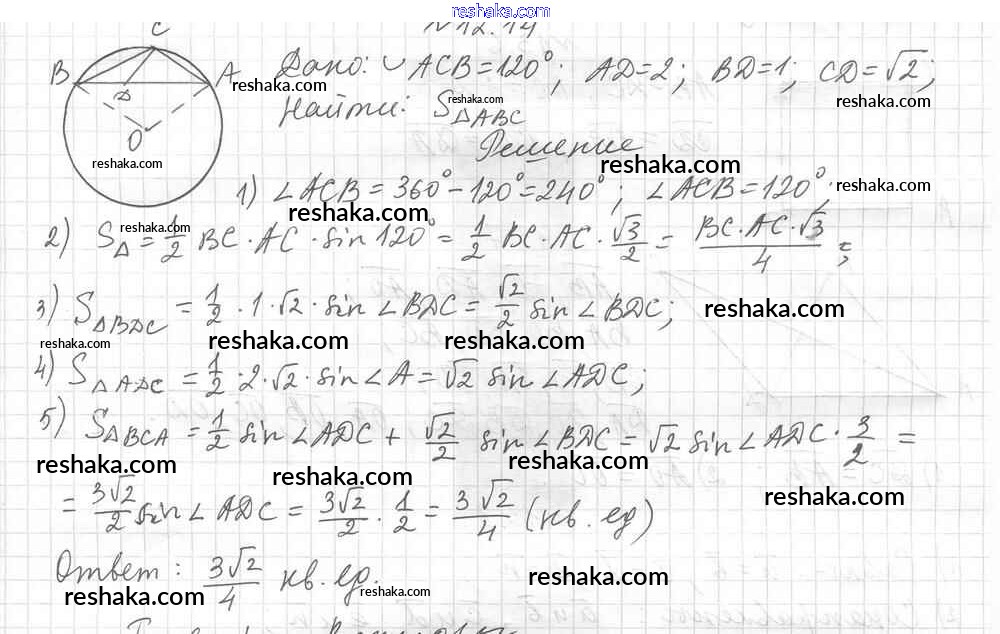 reshaka.com
№12.14
C
B A D O
Дано: ◡ACB=120°; AD=2; BD=1; CD=√2;
reshaka.com reshaka.com
Найти: S△ABC
reshaka.com
Решение
reshaka.com reshaka.com
1) ∠ACB = 360° - 120° = 240°; ∠ACB = 120°;
reshaka.com reshaka.com
2) S△ = 1/2 BC · AC · sin 120° = 1/2 BC · AC · √3/2 = BC·AC·√3/4;
reshaka.com
3) S△BDC = 1/2 · 1 · √2 · sin ∠BDC = √2/2 sin ∠BDC;
reshaka.com
reshaka.com reshaka.com reshaka.com
4) S△ADC = 1/2 · 2 · √2 · sin ∠A = √2 sin ∠ADC;
5) S△BCA = 1/2 sin ∠ADC + √2/2 sin ∠BDC = √2 sin ∠ADC · 3/2 =
reshaka.com reshaka.com reshaka.com
= 3√2/2 sin ∠ADC = 3√2/2 · 1/2 = 3√2/4 (кв. ед)
reshaka.com
Ответ: 3√2/4 кв. ед.
reshaka.com reshaka.com reshaka.com